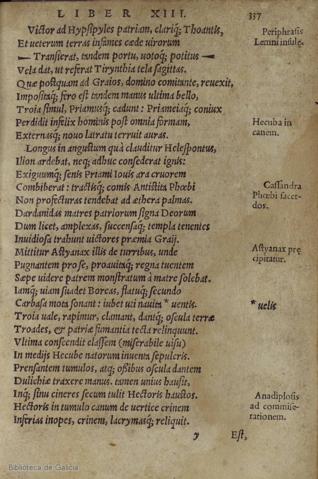 LIBER XIII.
337
Victor ad Hypsipyles patriam, clariq; Thoantis,
Periphrasis
Et ueterum terras infames cæde uirorum
Lemni insulę.
Transierat, tandem portu, uotoq; potitus
Vela dat, ut referat Tirynthia tela sagittas.
Quæ postquam ad Graios, domino comitante, reuexit,
Impositaq; sero est tandem manus ultima bello,
Troia simul, Priamusq; cadunt: Priameiaq; coniux
Perdidit infelix hominis post omnia formam,
Hecuba in
Externasq; nouo latratu terruit auras.
canem.
Longus in angustum quà clauditur Hellespontus,
Ilion ardebat, neq; adhuc consederat ignis:
Exiguumq; senis Priami Iouis ara cruorem
Combiberat: tractisq; comis Antistita Phœbi
Cassandra
Non profecturas tendebat ad æthera palmas.
Phœbi sacer-
Dardanidas matres patriorum signa Deorum
dos.
Dum licet, amplexas, succensaq; templa tenentes
Inuidiosa trahunt uictores præmia Graij.
Mittitur Astyanax illis de turribus, unde
Astyanax prę
Pugnantem pro se, proauitaq; regna tuentem
cipitatur.
Sæpe uidere patrem monstratum à matre solebat.
Iamq; uiam suadet Boreas, flatuq; secundo
Carbasa mota sonant: iubet uti nauita * uentis.
*uelis
Troia uale, rapimur, clamant, dantq; oscula terræ
Troades, et patriæ fumantia tecta relinquunt.
Vltima conscendit classem (miserabile uisu)
In medijs Hecube natorum inuenta sepulcris.
Prensantem tumulos, atq; ossibus oscula dantem
Dulichiæ traxere manus. tamen unius hausit,
Inq; sinu cineres secum tulit Hectoris haustos.
Anadiplosis
Hectoris in tumulo canum de uertice crinem
ad commise-
Inferias inopes, crinem, lacrymasq; reliquit.
rationem.
y
Est,
Biblioteca de Galicia